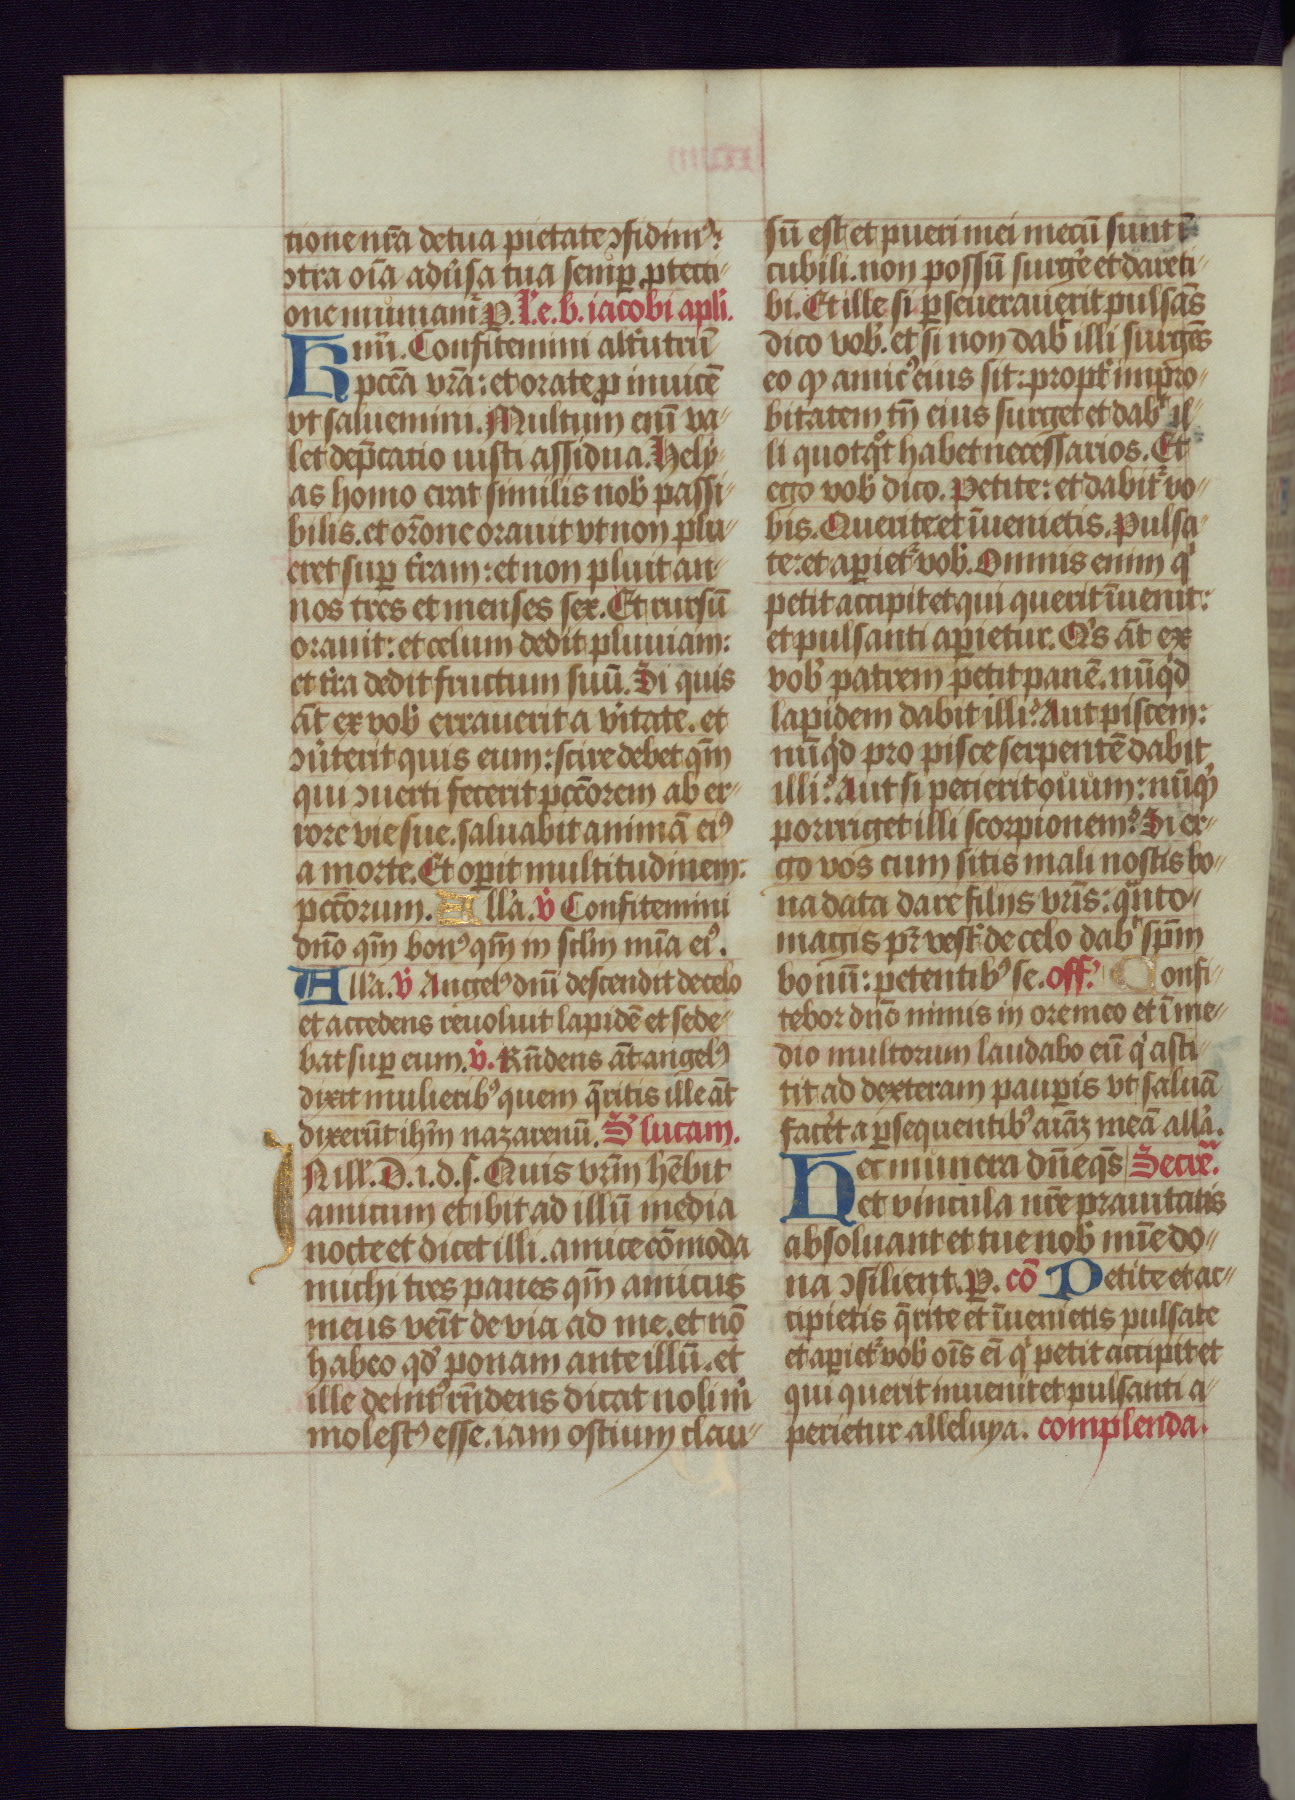 tione nr̄a de tua pietate ↄfidimꝰ:
ↄtra oīa aduͥsa tua semꝑ ꝓtecti-
one muniamͬ P. Le. b. iacobi apli.
Hmi. Confitemini alt͛utrū
pctā vrā: et orate ꝓ inuicē
vt saluemini. Multum enī va-
let dep̄catio iusti assidua. Hely-
as homo erat similis nob̛ passi-
bilis. et orōne orauit vt non plu-
eret suꝑ t͛ram: et non pluit an-
nos tres et menses sex. Et rursū
orauit: et celum dedit pluuiam:
et t͛ra dedit fructum suū. Si quis
āt ex vob̛ errauerit a v͛itate. et
ↄu͛terit quis eum: scire debet qm̄
qui ↄuerti fecerit pctōrem ab er-
rore vie sue. saluabit animā eiꝰ
a morte. Et oꝑit multitudinem:
pctōrum. All'a. v̇ Confitemini
dn̄o qm̄ bonꝰ qm̄ in sclm̄ mīa eiꝰ.
All'a. v̇ Angelꝰ dn̄i descendit de celo
et accedens reuoluit lapidē et sede-
bat suꝑ eum. v̇. Rn̄dens āt angelꝰ
dixit mulieribꝰ quem q̄ritis ille āt
dixerūt ihm̄ nazarenū. S' lucam.
In ill'. D. i. d. s. Quis vrm̄ hēbit
amicum et ibit ad illū media
nocte et dicet illi. amice cōmoda
michi tres panes qm̄ amicus
meus venīt de via ad me. et nō
habeo qd̛ ponam ante illū. et
ille deintꝰ rn̄dens dicat noli m̍
molestꝰ esse. iam ostium clau-
sū est et pueri mei mecū sunt ī
cubili. non possū surge͛ et dare ti-
bi. Et ille si ꝑseuerauerit pulsās
dico vob̛. et si non dab̍ illi surgēs
eo ꝙ amicꝰ eius sit: propt͛ impro-
bitatem tn̄ eius surget et dab̍ il-
li quotqͦt habet necessarios. Et
ego vob̛ dico. Petite: et dabit͛ vo-
bis. Querite et īuenietis. Pulsa-
te: et aꝑiet͛ vob̛. Omnis enim q̍
petit accipit et qui querit īuenit:
et pulsanti aꝑietur. Q̍s āt ex
vob̛ patrem petit panē. nūq̍d
lapidem dabit illi? Aut piscem:
nūq̍d pro pisce serpentē dabit
illi? Aut si petierit ouum: nūq̍d
porriget illi scorpionem? Si er-
go vos cum sitis mali nostis bo-
na data dare filijs vrīs: qͣnto
magis pr̄ vest͛ de celo dab̍ spm̄
bonū: petentibꝰ se. off'. Confi-
tebor dn̄o nimis in ore meo et ī me-
dio multorum laudabo eū q̍ asti-
tit ad dexteram pauꝑis vt saluā
facēt a ꝑsequentibꝰ aīaꝫ meā all'a.
Hec munera dn̄e qs̄ Secre͛.
et vincula nr̄e prauitatis
absoluant et tue nob̛ mīe do-
na ↄsilient. P. cō Petite et ac-
cipietis q̄rite et īuenietis pulsate
et aꝑiet͛ vob̛ oīs ēi q̍ petit accipit et
qui querit inuenit et pulsanti a-
perietur alleluya. complenda.